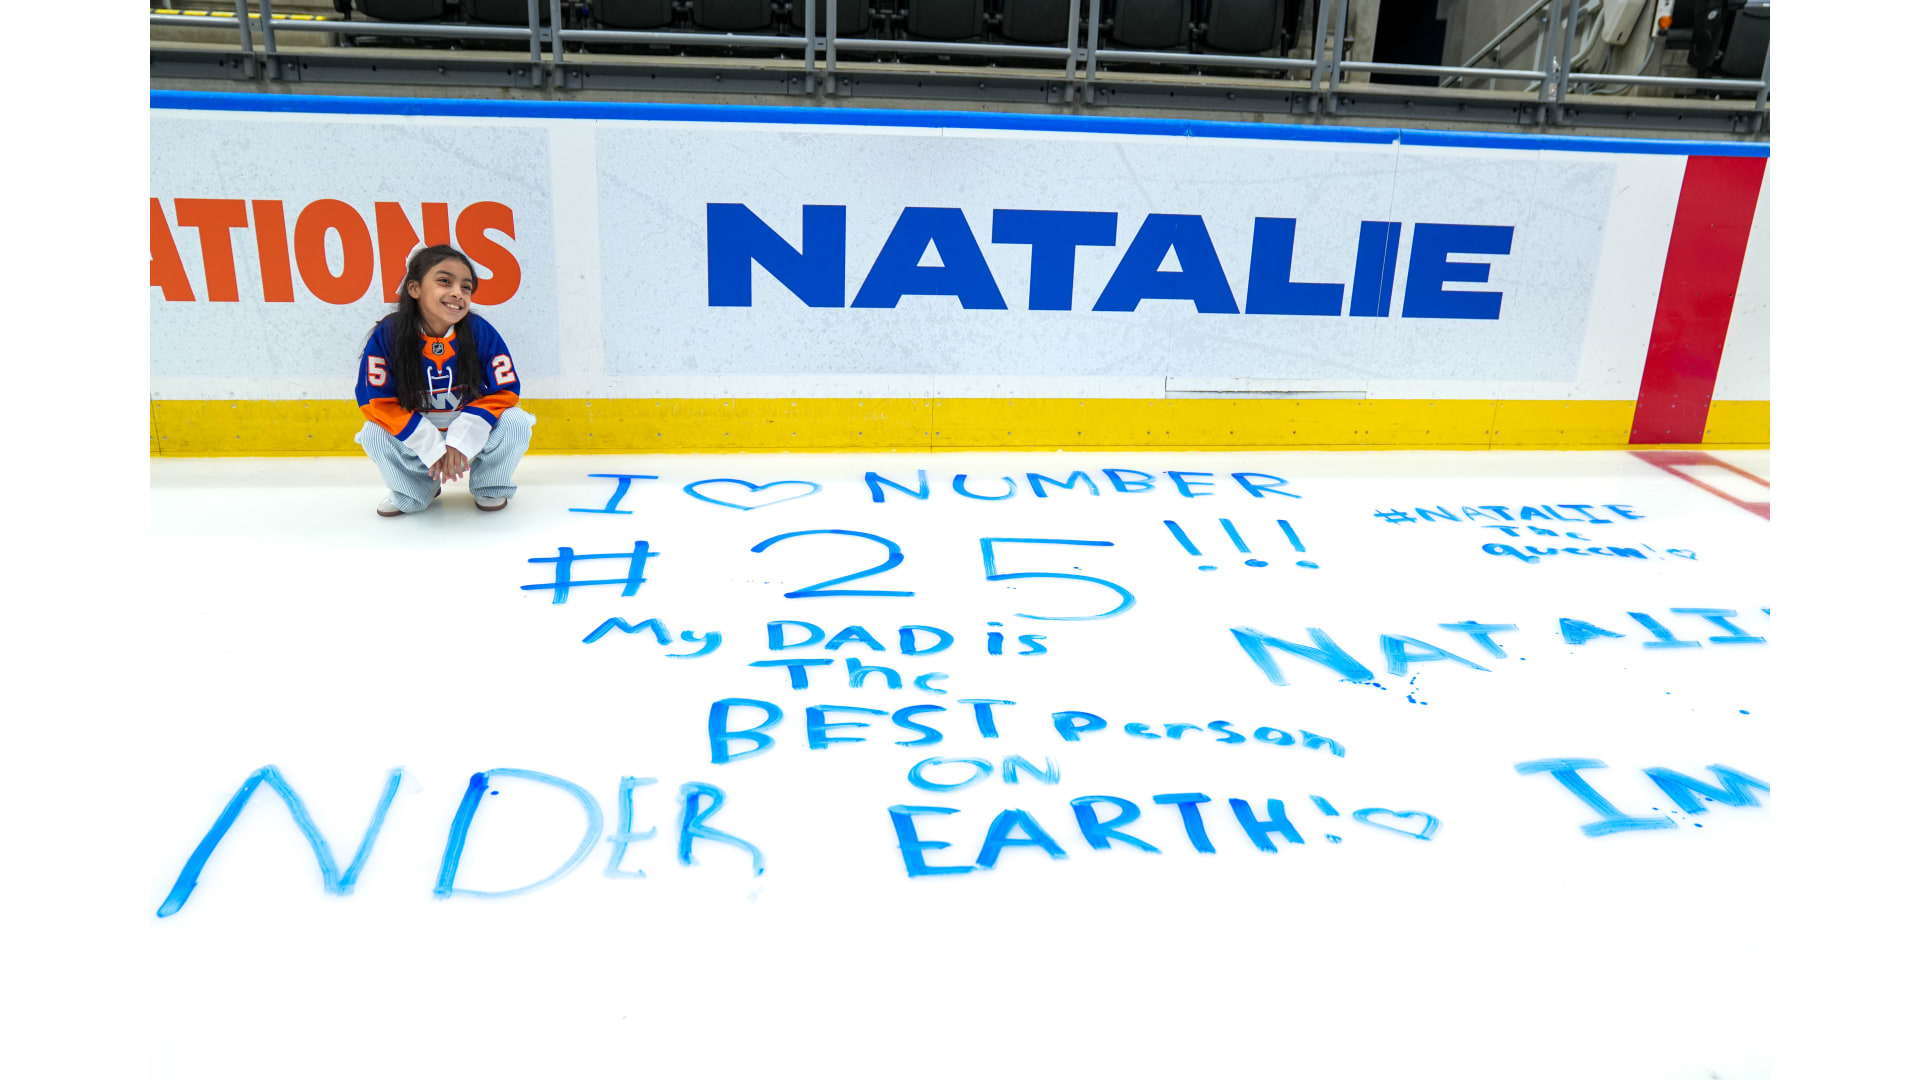 ATIONS
NATALIE
5 2
I ♡ NUMBER
#25!!!
#NATALIE
The
queen!♡
My DAD is
The
NATALI
BEST person
ON
EARTH!♡
NDER
IM